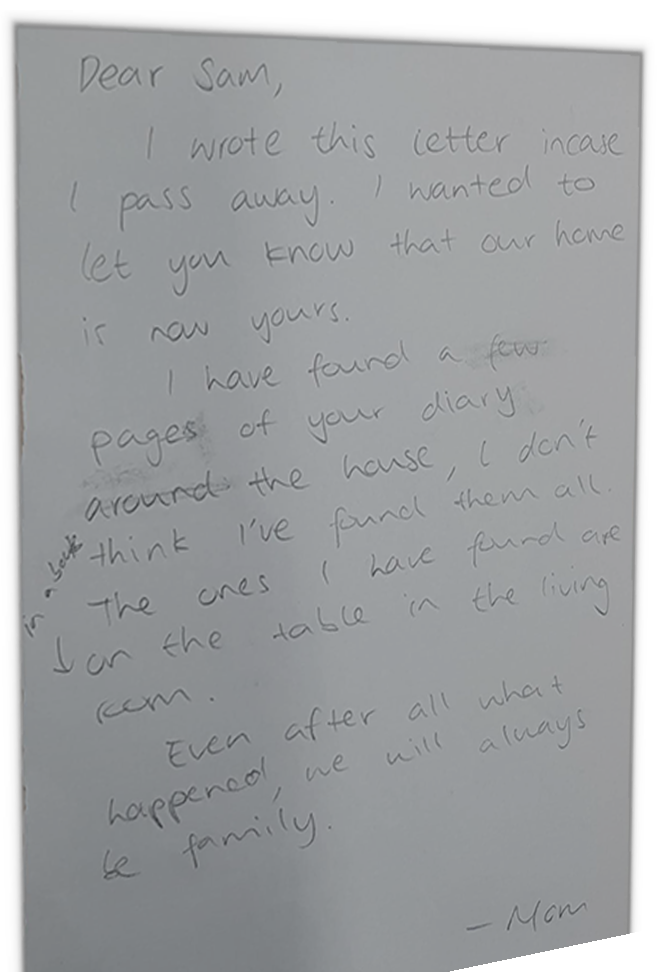 Dear Sam,
I wrote this letter incase
I pass away. I wanted to
let you know that our home
is now yours.
I have found a few
pages of your diary
around the house, I don't
think I've found them all.
The ones I have found are
in a book
on the table in the living
room.
Even after all what
happened, we will always
be family.
- Mom